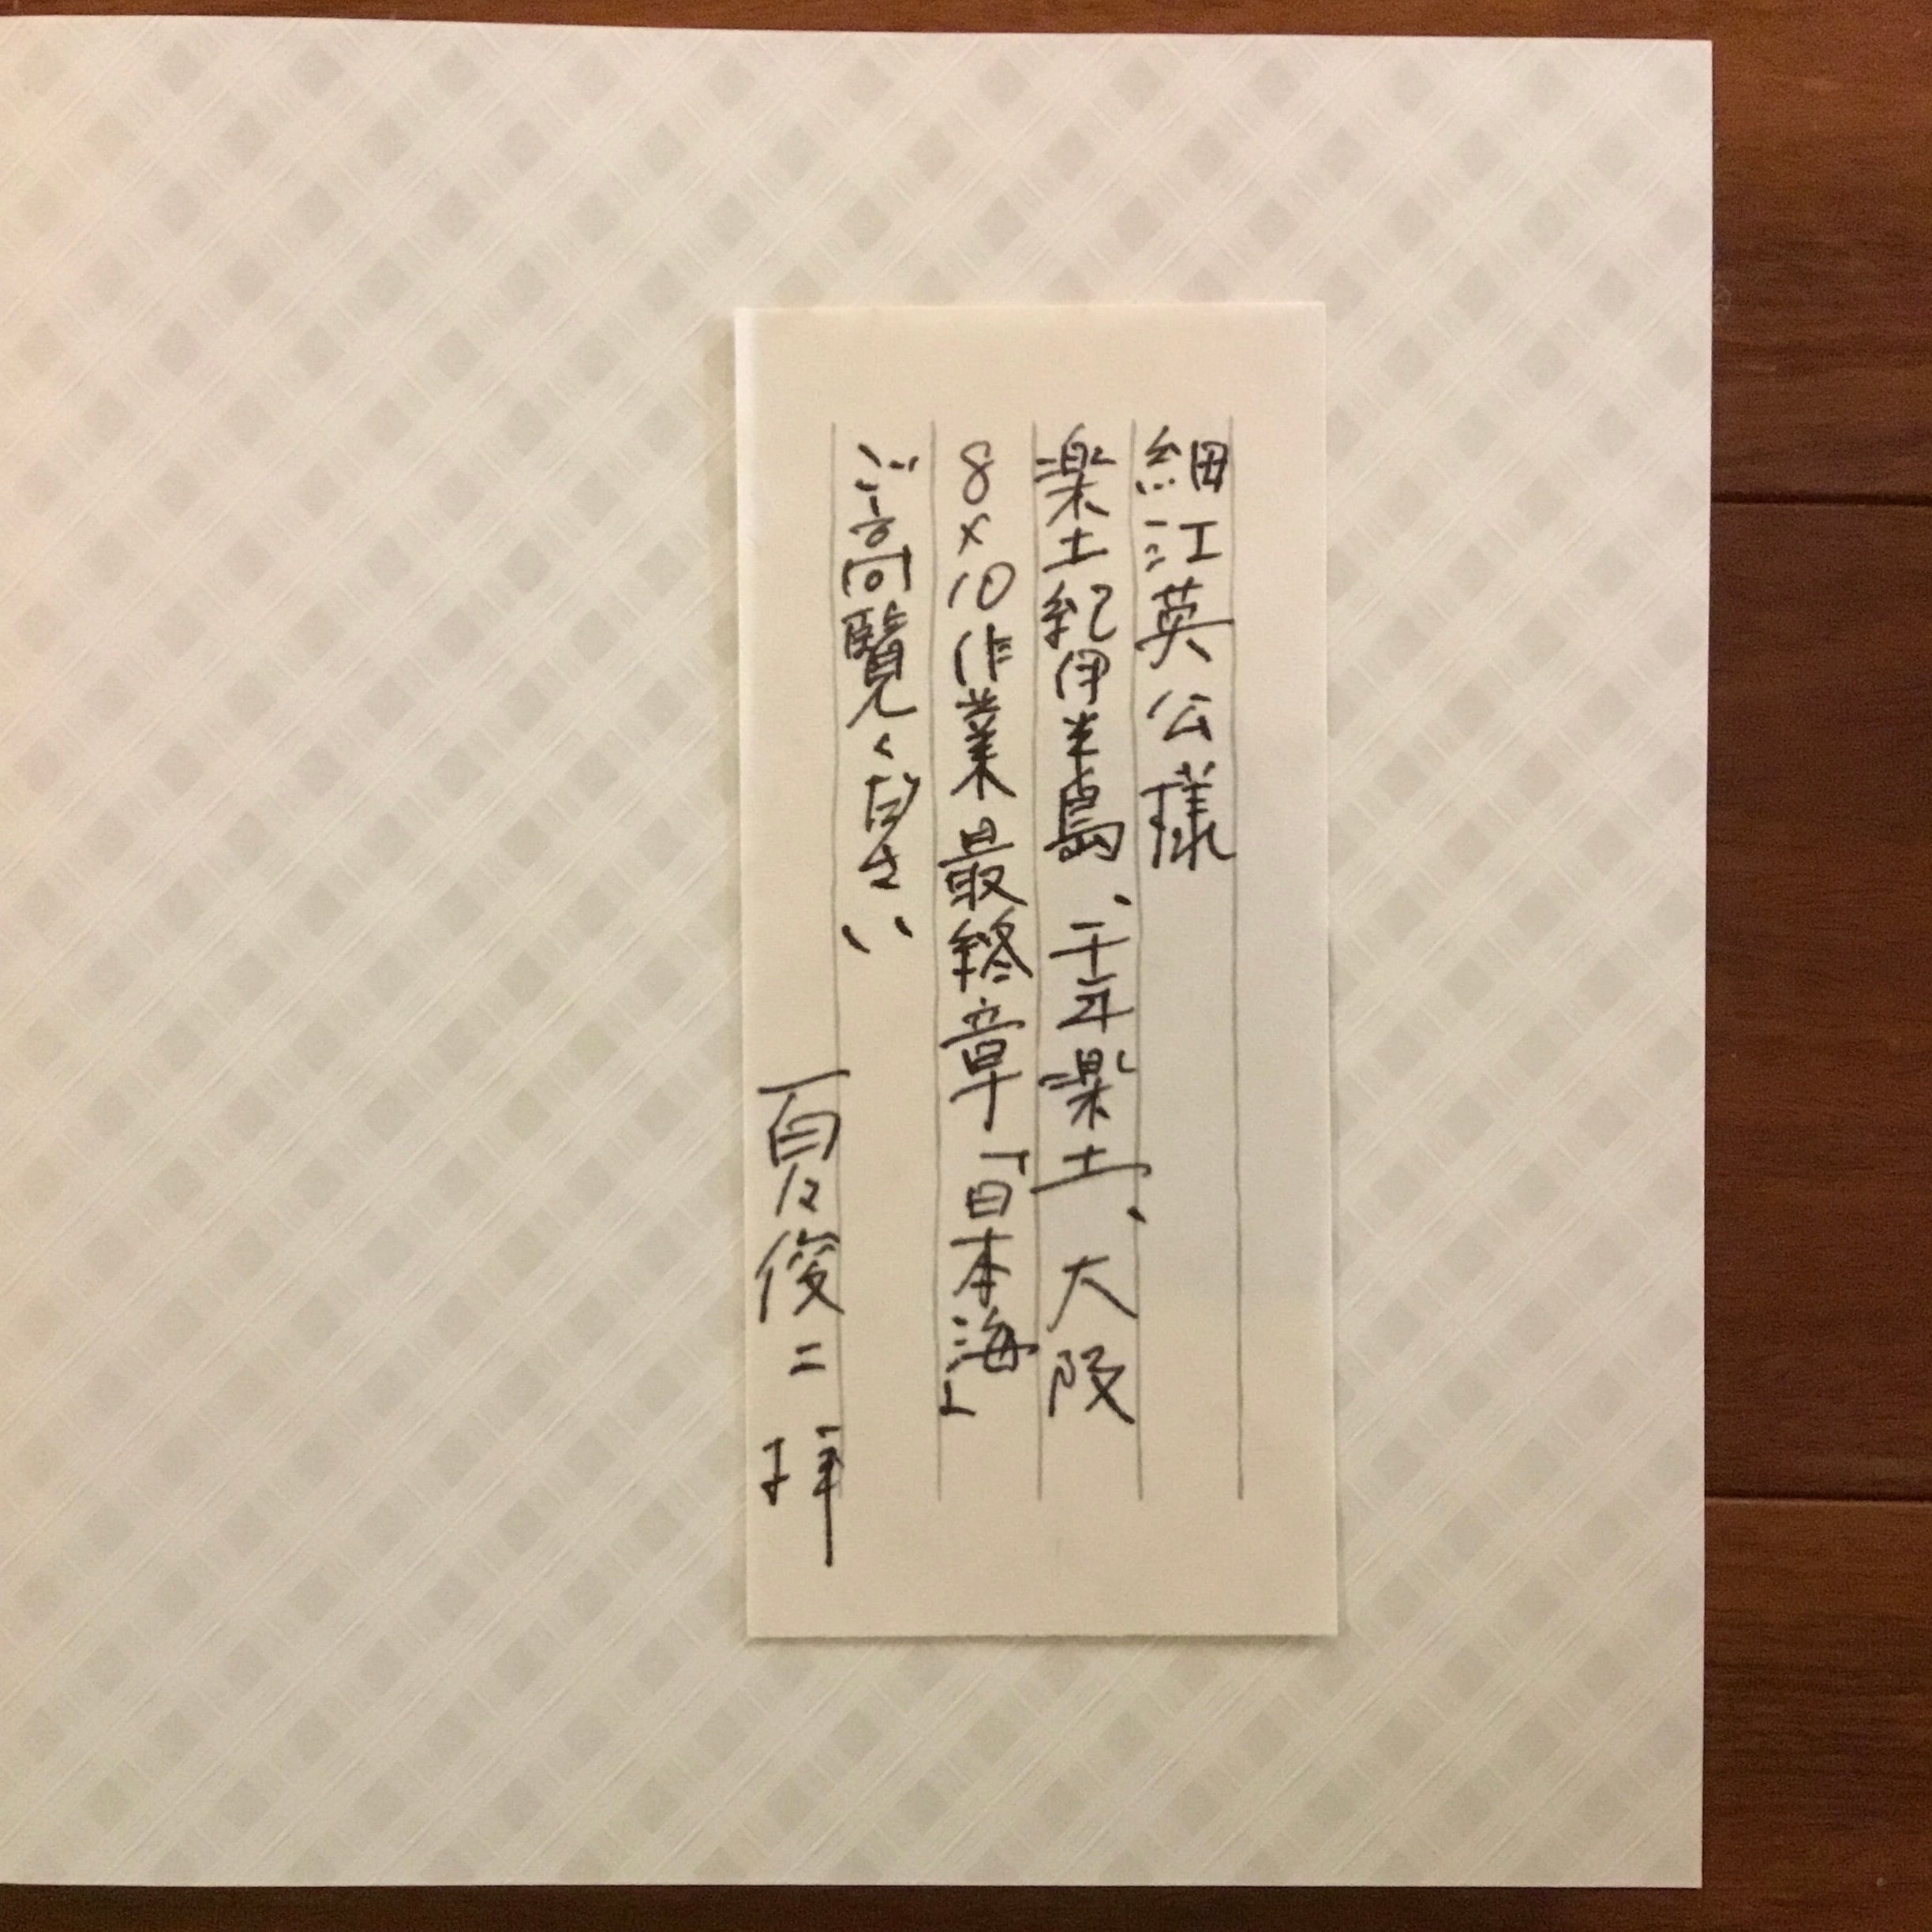 細江英公様
楽土紀伊半島、千年楽土、大阪
8×10作業最終章「日本海」
ご高覧ください
百々俊二 拝